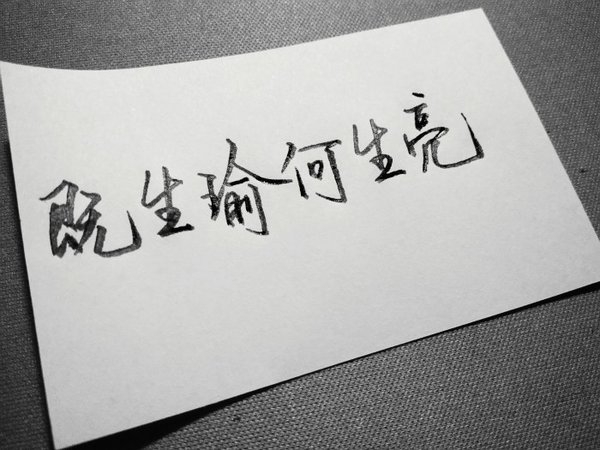 既生瑜何生亮